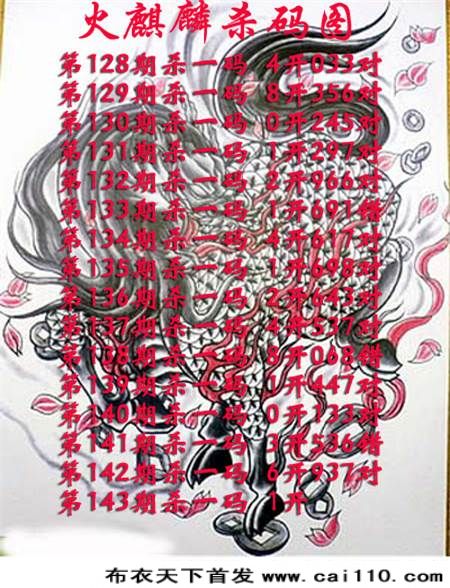 火麒麟杀码图
第128期杀一码 4开033对
第129期杀一码 8开356对
第130期杀一码 0开245对
第131期杀一码 1开297对
第132期杀一码 2开966对
第133期杀一码 1开691错
第134期杀一码 4开617对
第135期杀一码 1开698对
第136期杀一码 2开643对
第137期杀一码 4开537对
第138期杀一码 8开068错
第139期杀一码 1开447对
第140期杀一码 0开133对
第141期杀一码 3开536错
第142期杀一码 6开937对
第143期杀一码 1开
布衣天下首发 www.cai110.com